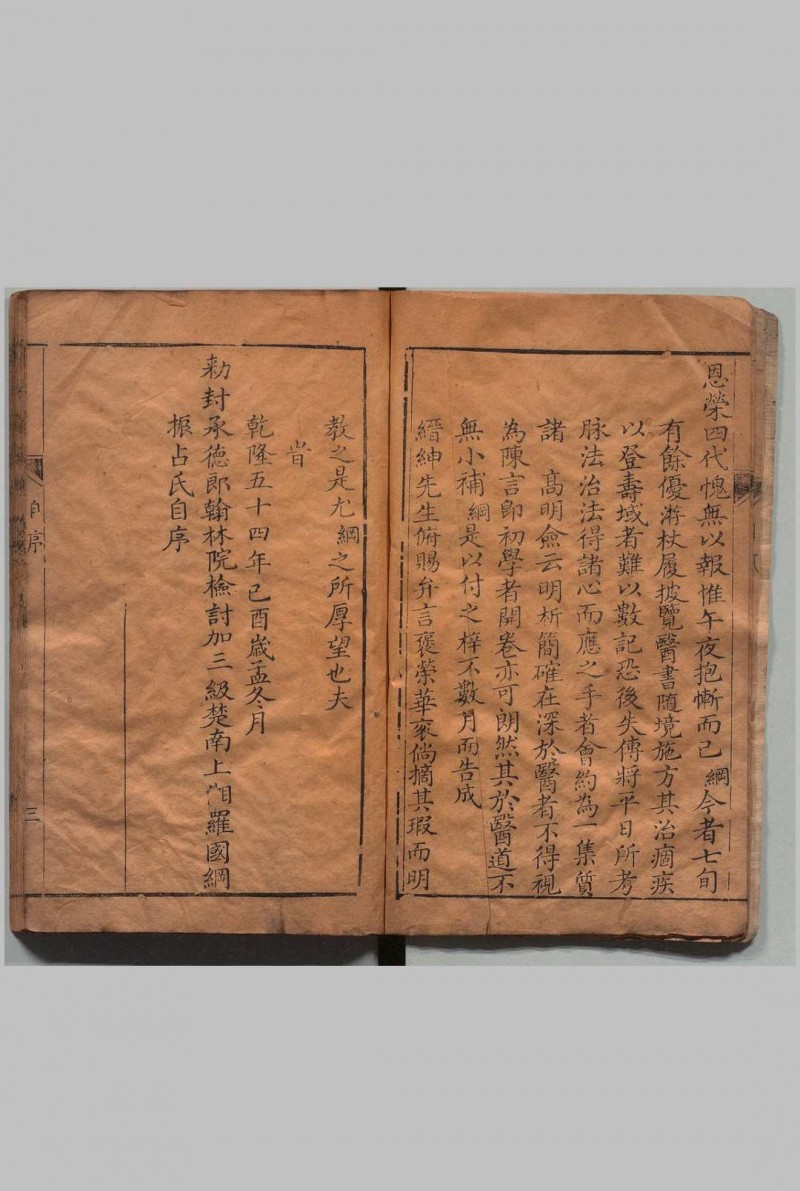 恩榮四代愧無以報惟午夜抱慚而已綱今者七旬
有餘優游杖履披覽醫書隨境施方其治痼疾
以登壽域者難以數記恐後失傳將平日所考
脉法治法得諸心而應之手者會約為一集質
諸　高明僉云明析簡確在深於醫者不得視
為陳言即初學者開卷亦可朗然其於醫道不
無小補綱是以付之梓不數月而告成
縉紳先生俯賜弁言褒榮華衮倘摘其瑕而明
教之是尤綱之所厚望也夫
旹
乾隆五十四年己酉歲孟冬月
勅封承德郎翰林院檢討加三級楚南上湘羅國綱
振占氏自序
自序
三